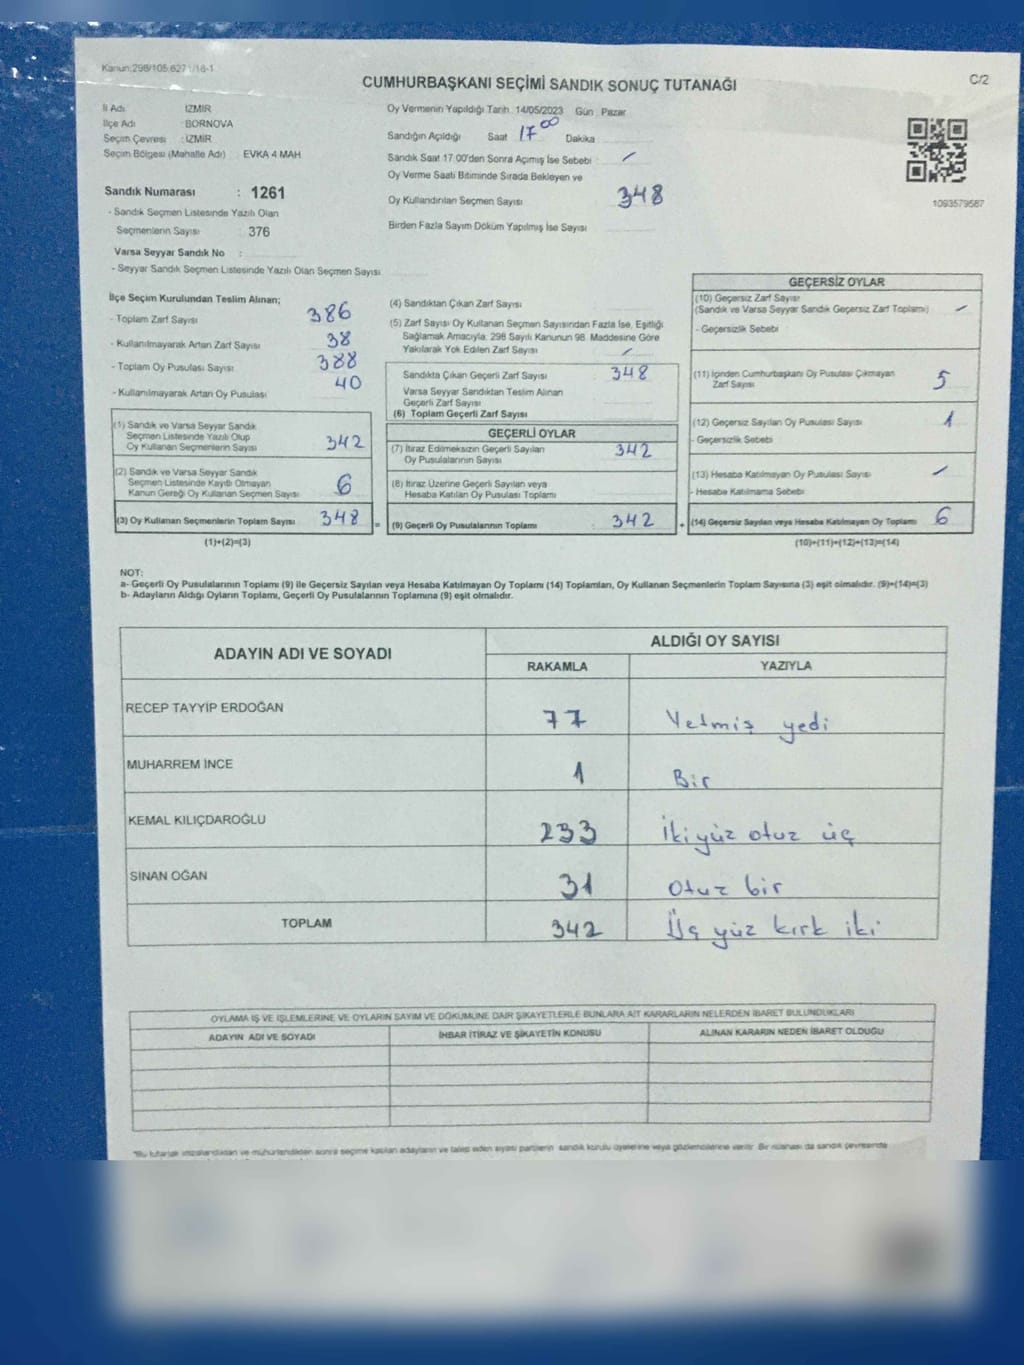 Kanun:298/105,627 1/16-1
C/2
CUMHURBAŞKANI SEÇİMİ SANDIK SONUÇ TUTANAĞI
İl Adı : İZMİR
İlçe Adı : BORNOVA
Seçim Çevresi : İZMİR
Seçim Bölgesi (Mahalle Adı) : EVKA 4 MAH
Oy Vermenin Yapıldığı Tarih : 14/05/2023 Gün : Pazar
Sandığın Açıldığı Saat 17 00 Dakika
Sandık Saat 17.00'den Sonra Açılmış İse Sebebi : -
Oy Verme Saati Bitiminde Sırada Bekleyen ve
Oy Kullandırılan Seçmen Sayısı 348
Birden Fazla Sayım Döküm Yapılmış İse Sayısı
1093579587
Sandık Numarası : 1261
- Sandık Seçmen Listesinde Yazılı Olan
Seçmenlerin Sayısı 376
Varsa Seyyar Sandık No :
- Seyyar Sandık Seçmen Listesinde Yazılı Olan Seçmen Sayısı
İlçe Seçim Kurulundan Teslim Alınan;
- Toplam Zarf Sayısı 386
- Kullanılmayarak Artan Zarf Sayısı 38
- Toplam Oy Pusulası Sayısı 388
- Kullanılmayarak Artan Oy Pusulası 40
(1) Sandık ve Varsa Seyyar Sandık
Seçmen Listesinde Yazılı Olup
Oy Kullanan Seçmenlerin Sayısı 342
(2) Sandık ve Varsa Seyyar Sandık
Seçmen Listesinde Kayıtlı Olmayan
Kanun Gereği Oy Kullanan Seçmen Sayısı 6
(3) Oy Kullanan Seçmenlerin Toplam Sayısı 348 =
(1)+(2)=(3)
(4) Sandıktan Çıkan Zarf Sayısı
(5) Zarf Sayısı Oy Kullanan Seçmen Sayısından Fazla İse, Eşitliği
Sağlamak Amacıyla, 298 Sayılı Kanunun 98. Maddesine Göre
Yakılarak Yok Edilen Zarf Sayısı -
Sandıkta Çıkan Geçerli Zarf Sayısı 348
Varsa Seyyar Sandıktan Teslim Alınan
Geçerli Zarf Sayısı
(6) Toplam Geçerli Zarf Sayısı
GEÇERLİ OYLAR
(7) İtiraz Edilmeksizin Geçerli Sayılan
Oy Pusulalarının Sayısı 342
(8) İtiraz Üzerine Geçerli Sayılan veya
Hesaba Katılan Oy Pusulası Toplamı
(9) Geçerli Oy Pusulalarının Toplamı : 342 +
GEÇERSİZ OYLAR
(10) Geçersiz Zarf Sayısı
(Sandık ve Varsa Seyyar Sandık Geçersiz Zarf Toplamı) -
- Geçersizlik Sebebi
(11) İçinden Cumhurbaşkanı Oy Pusulası Çıkmayan
Zarf Sayısı 5
(12) Geçersiz Sayılan Oy Pusulası Sayısı 1
- Geçersizlik Sebebi
(13) Hesaba Katılmayan Oy Pusulası Sayısı -
- Hesaba Katılmama Sebebi
(14) Geçersiz Sayılan veya Hesaba Katılmayan Oy Toplamı 6
(10)+(11)+(12)+(13)=(14)
NOT:
a- Geçerli Oy Pusulalarının Toplamı (9) ile Geçersiz Sayılan veya Hesaba Katılmayan Oy Toplamı (14) Toplamları, Oy Kullanan Seçmenlerin Toplam Sayısına (3) eşit olmalıdır. (9)+(14)=(3)
b- Adayların Aldığı Oyların Toplamı, Geçerli Oy Pusulalarının Toplamına (9) eşit olmalıdır.
ADAYIN ADI VE SOYADI ALDIĞI OY SAYISI
RAKAMLA YAZIYLA
RECEP TAYYİP ERDOĞAN 77 Yetmiş yedi
MUHARREM İNCE 1 Bir
KEMAL KILIÇDAROĞLU 233 İkiyüz otuz üç
SİNAN OĞAN 31 Otuz bir
TOPLAM 342 Üç yüz kırk iki
OYLAMA İŞ VE İŞLEMLERİNE VE OYLARIN SAYIM VE DÖKÜMÜNE DAİR ŞİKAYETLERLE BUNLARA AİT KARARLARIN NELERDEN İBARET BULUNDUKLARI
ADAYIN ADI VE SOYADI İHBAR İTİRAZ VE ŞİKAYETİN KONUSU ALINAN KARARIN NEDEN İBARET OLDUĞU
*Bu tutanak imzalandıktan ve mühürlendikten sonra seçime katılan adayların ve talep eden siyasi partilerin sandık kurulu üyelerine veya gözlemcilerine verilir. Bir nüshası da sandık çevresinde